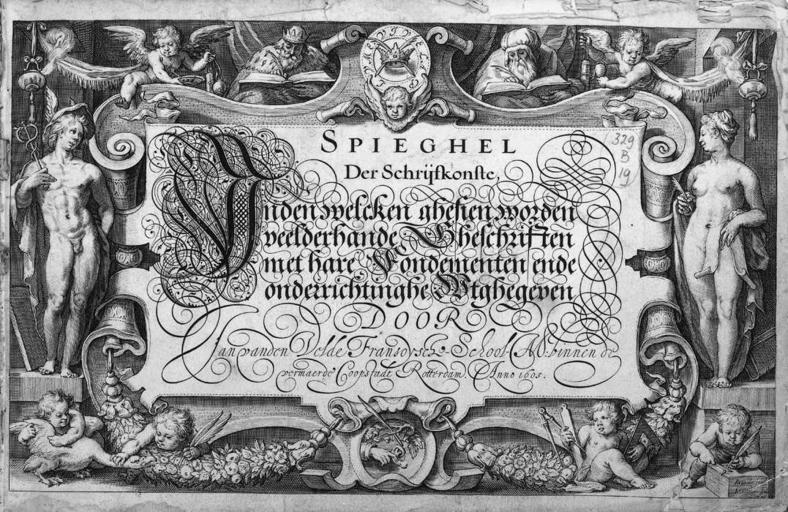 SPIEGHEL
Der Schrijfkonste,
Inden welcken ghesien worden
veelderhande Gheschriften
met hare Fondementen ende
onderrichtinghe Wtghegeven
DOOR
Jan vanden Velde Fransoysch-School Mr. binnen de
vermaerde Coopstadt Rotterdam. Anno 1605.
329
B
19